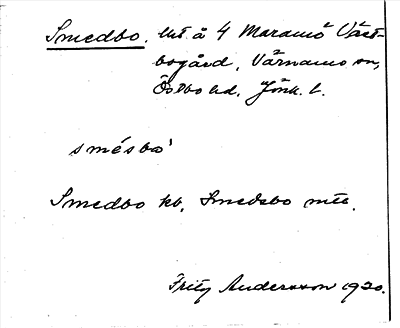 Smedbo. Uts. å 4 Maramö Väst-
bogård, Värnamo sn,
Östbo hd, Jönk. l.
smésbo'
Smedbo kb, Smedsbo mtl.
Fritz Andersson 1920.